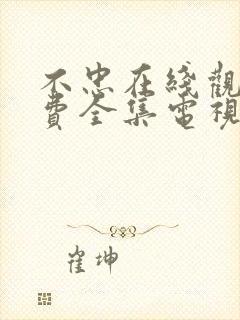 不忠在綫觀
費全集電視
崔坤